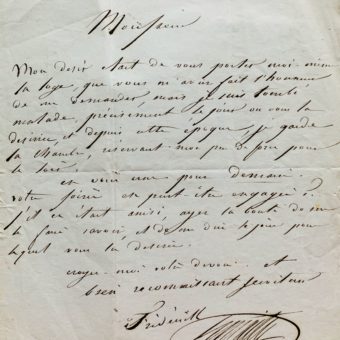 Monsieur
Mon désir était de vous porter moi-même
la loge, que vous m'avez fait l'honneur
de me demander, mais je suis tombé
malade, précisement le jour ou vous la
desiriez, et depuis cette époque, je garde
la chambre, reservant mon peu de force pour
le soir.
en veux une pour demain.
votre soirée est peut-être engagée
s'il en était ainsi, ayez la bonté de me
le faire savoir, et de me dire le jour pour
lequel vous la desirez.
croyez-moi votre dévoué et
bien reconnaissant serviteur
Frédérick